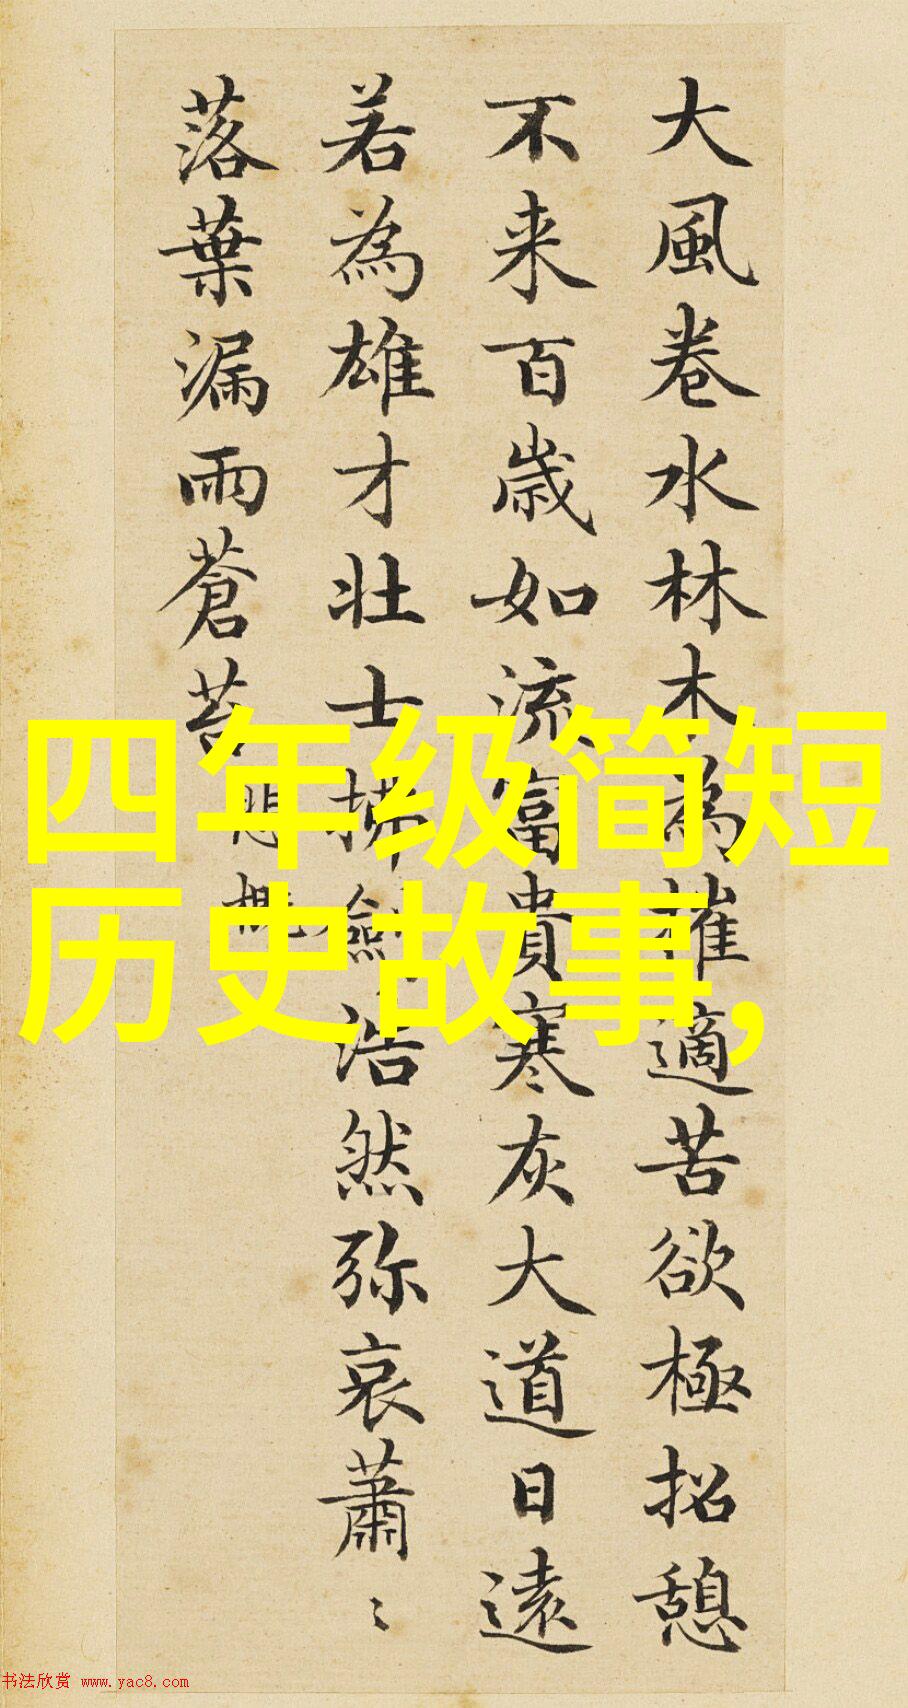 大風卷水林木為摧適苦欲極招憩
不来百歳如流富貴寒灰大道日遠
若為雄才壮士拂劍浩然弥哀蕭〻
落葉漏雨蒼苔
悲慨
四年级简短
历史故事,
书法欣赏 www.yac8.com